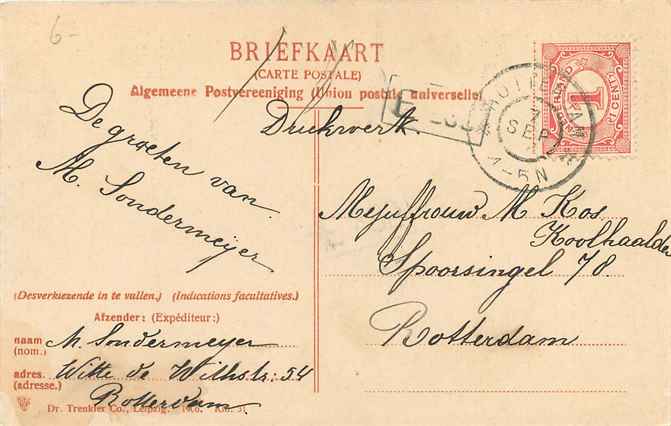 6-
BRIEFKAART
(CARTE POSTALE)
Algemeene Postvereeniging (Union postale universelle)
Drukwerk
De groeten van
M. Sondermeyer
SEP
4-5N
1
CENT
Mejuffrouw M. Kos
Koolhaalder
Spoorsingel 78
Rotterdam
(Desverkiezende in te vullen.) (Indications facultatives.)
Afzender: (Expéditeur:)
naam M. Sondermeyer
(nom.)
adres. Witte de Withstr. 54
(adresse.)
Rotterdam
Dr. Trenkler Co., Leipzig. 1906. Rm. 31